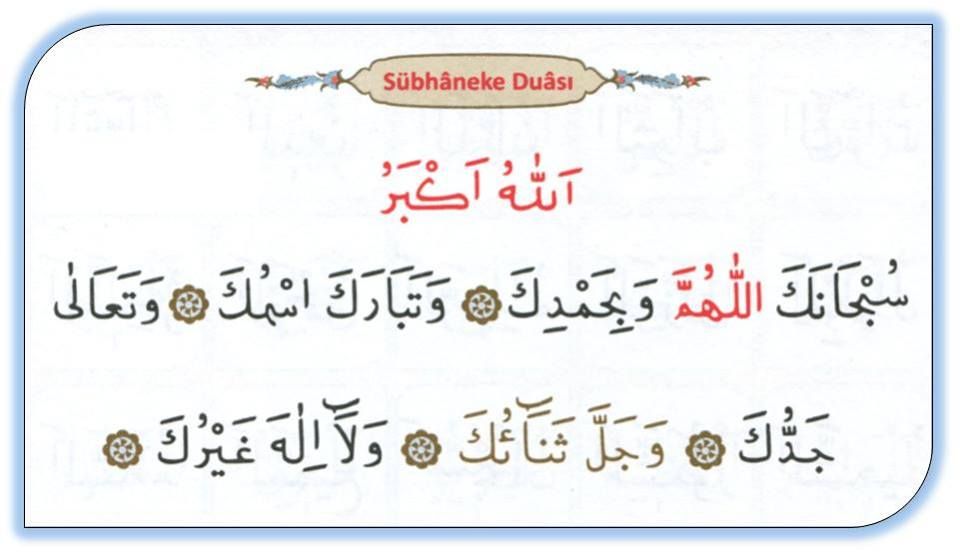 Sübhâneke Duâsı
اَللّٰهُ اَكْبَرُ
سُبْحَانَكَ اللّٰهُمَّ وَبِحَمْدِكَ ۞ وَتَبَارَكَ اسْمُكَ ۞ وَتَعَالٰى
جَدُّكَ ۞ وَجَلَّ ثَنَاۤؤُ۬كَ ۞ وَلَاۤ اِلٰهَ غَيْرُكَ ۞